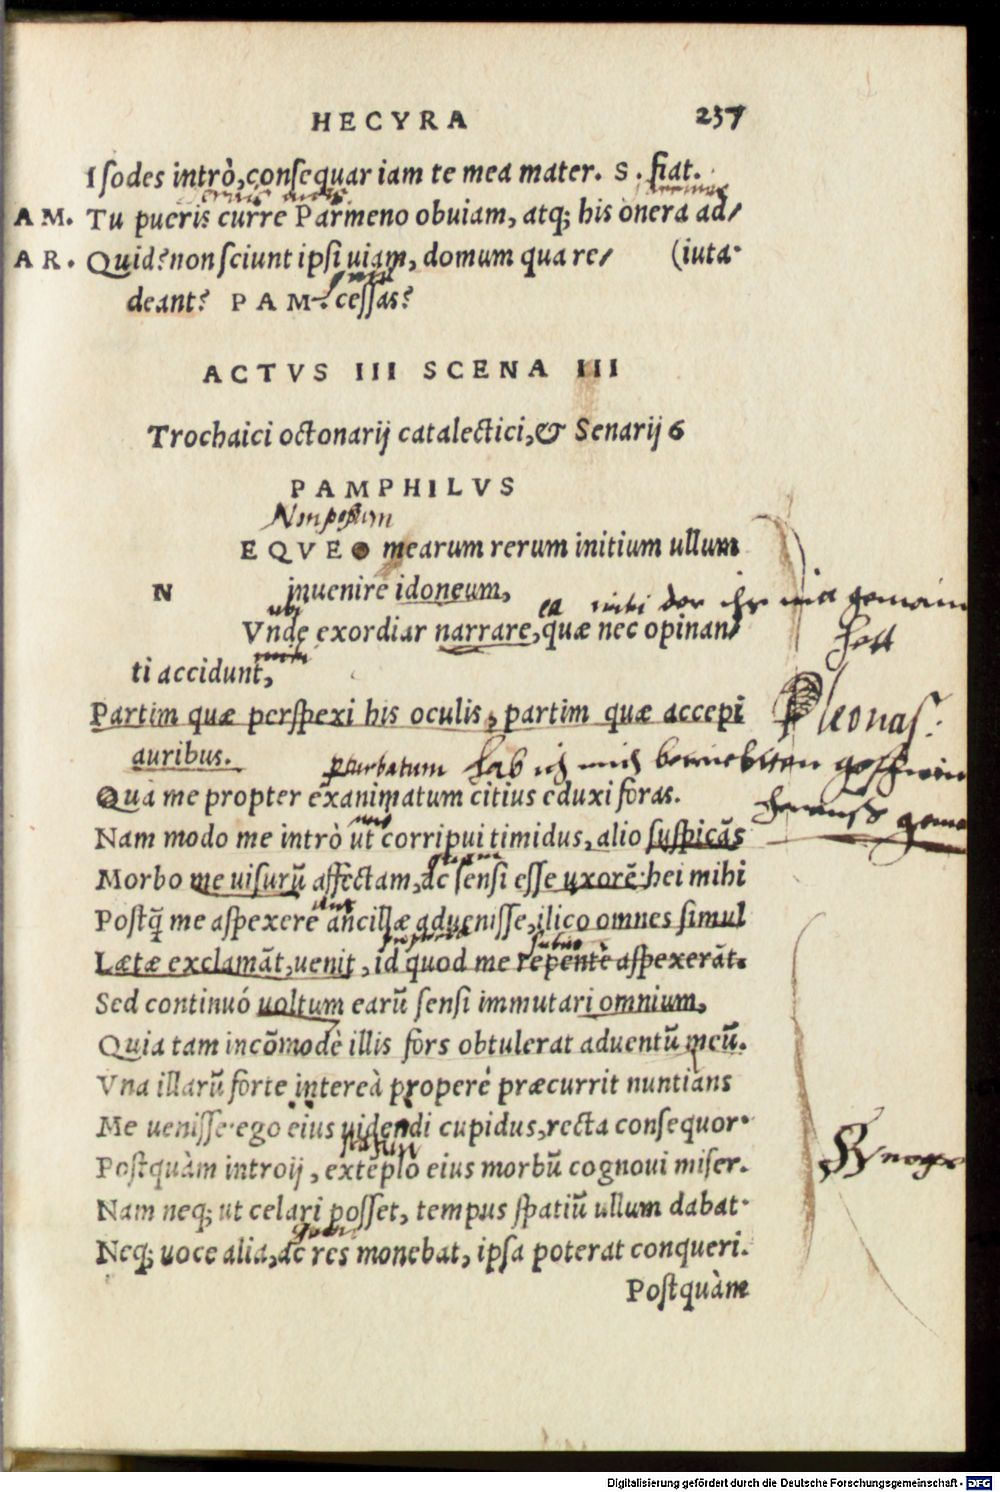 HECYRA 237
I sodes intrò, consequar iam te mea mater. S. fiat.
AM. Tu pueris curre Parmeno obuiam, atq; his onera ad/
AR. Quid? non sciunt ipsi uiam, domum qua re/ (iuta.
deant? PAM. cessas?
ACTVS III SCENA III
Trochaici octonarij catalectici, & Senarij 6
PAMPHILVS
Non possum
NEQVEO mearum rerum initium ullum
inuenire idoneum,
ubi ea mihi
Vnde exordiar narrare, quæ nec opinan/
hett
ti accidunt,
Partim quæ perspexi his oculis, partim quæ accepi
Pleonas.
auribus.
perturbatum hab ich mich
Qua me propter exanimatum citius eduxi foras.
Nam modo me intrò ut corripui timidus, alio suspicãs
quam
Morbo me uisurũ affectam, ac sensi esse uxorẽ: hei mihi
Postq̃ me aspexere ancillæ aduenisse, ilico omnes simul
subito
Lætæ exclamãt, uenit, id quod me repentè aspexerãt.
Sed continuó uoltum earũ sensi immutari omnium,
Quia tam incõmodè illis fors obtulerat aduentũ meũ.
Vna illarũ forte intereà properé præcurrit nuntians
Me uenisse. ego eius uidendi cupidus, recta consequor.
statim
Postquàm introij, extẽplo eius morbũ cognoui miser.
Nam neq; ut celari posset, tempus spatiũ ullum dabat.
quam
Neq; uoce alia, ac res monebat, ipsa poterat conqueri.
Postquàm
Digitalisierung gefördert durch die Deutsche Forschungsgemeinschaft - DFG